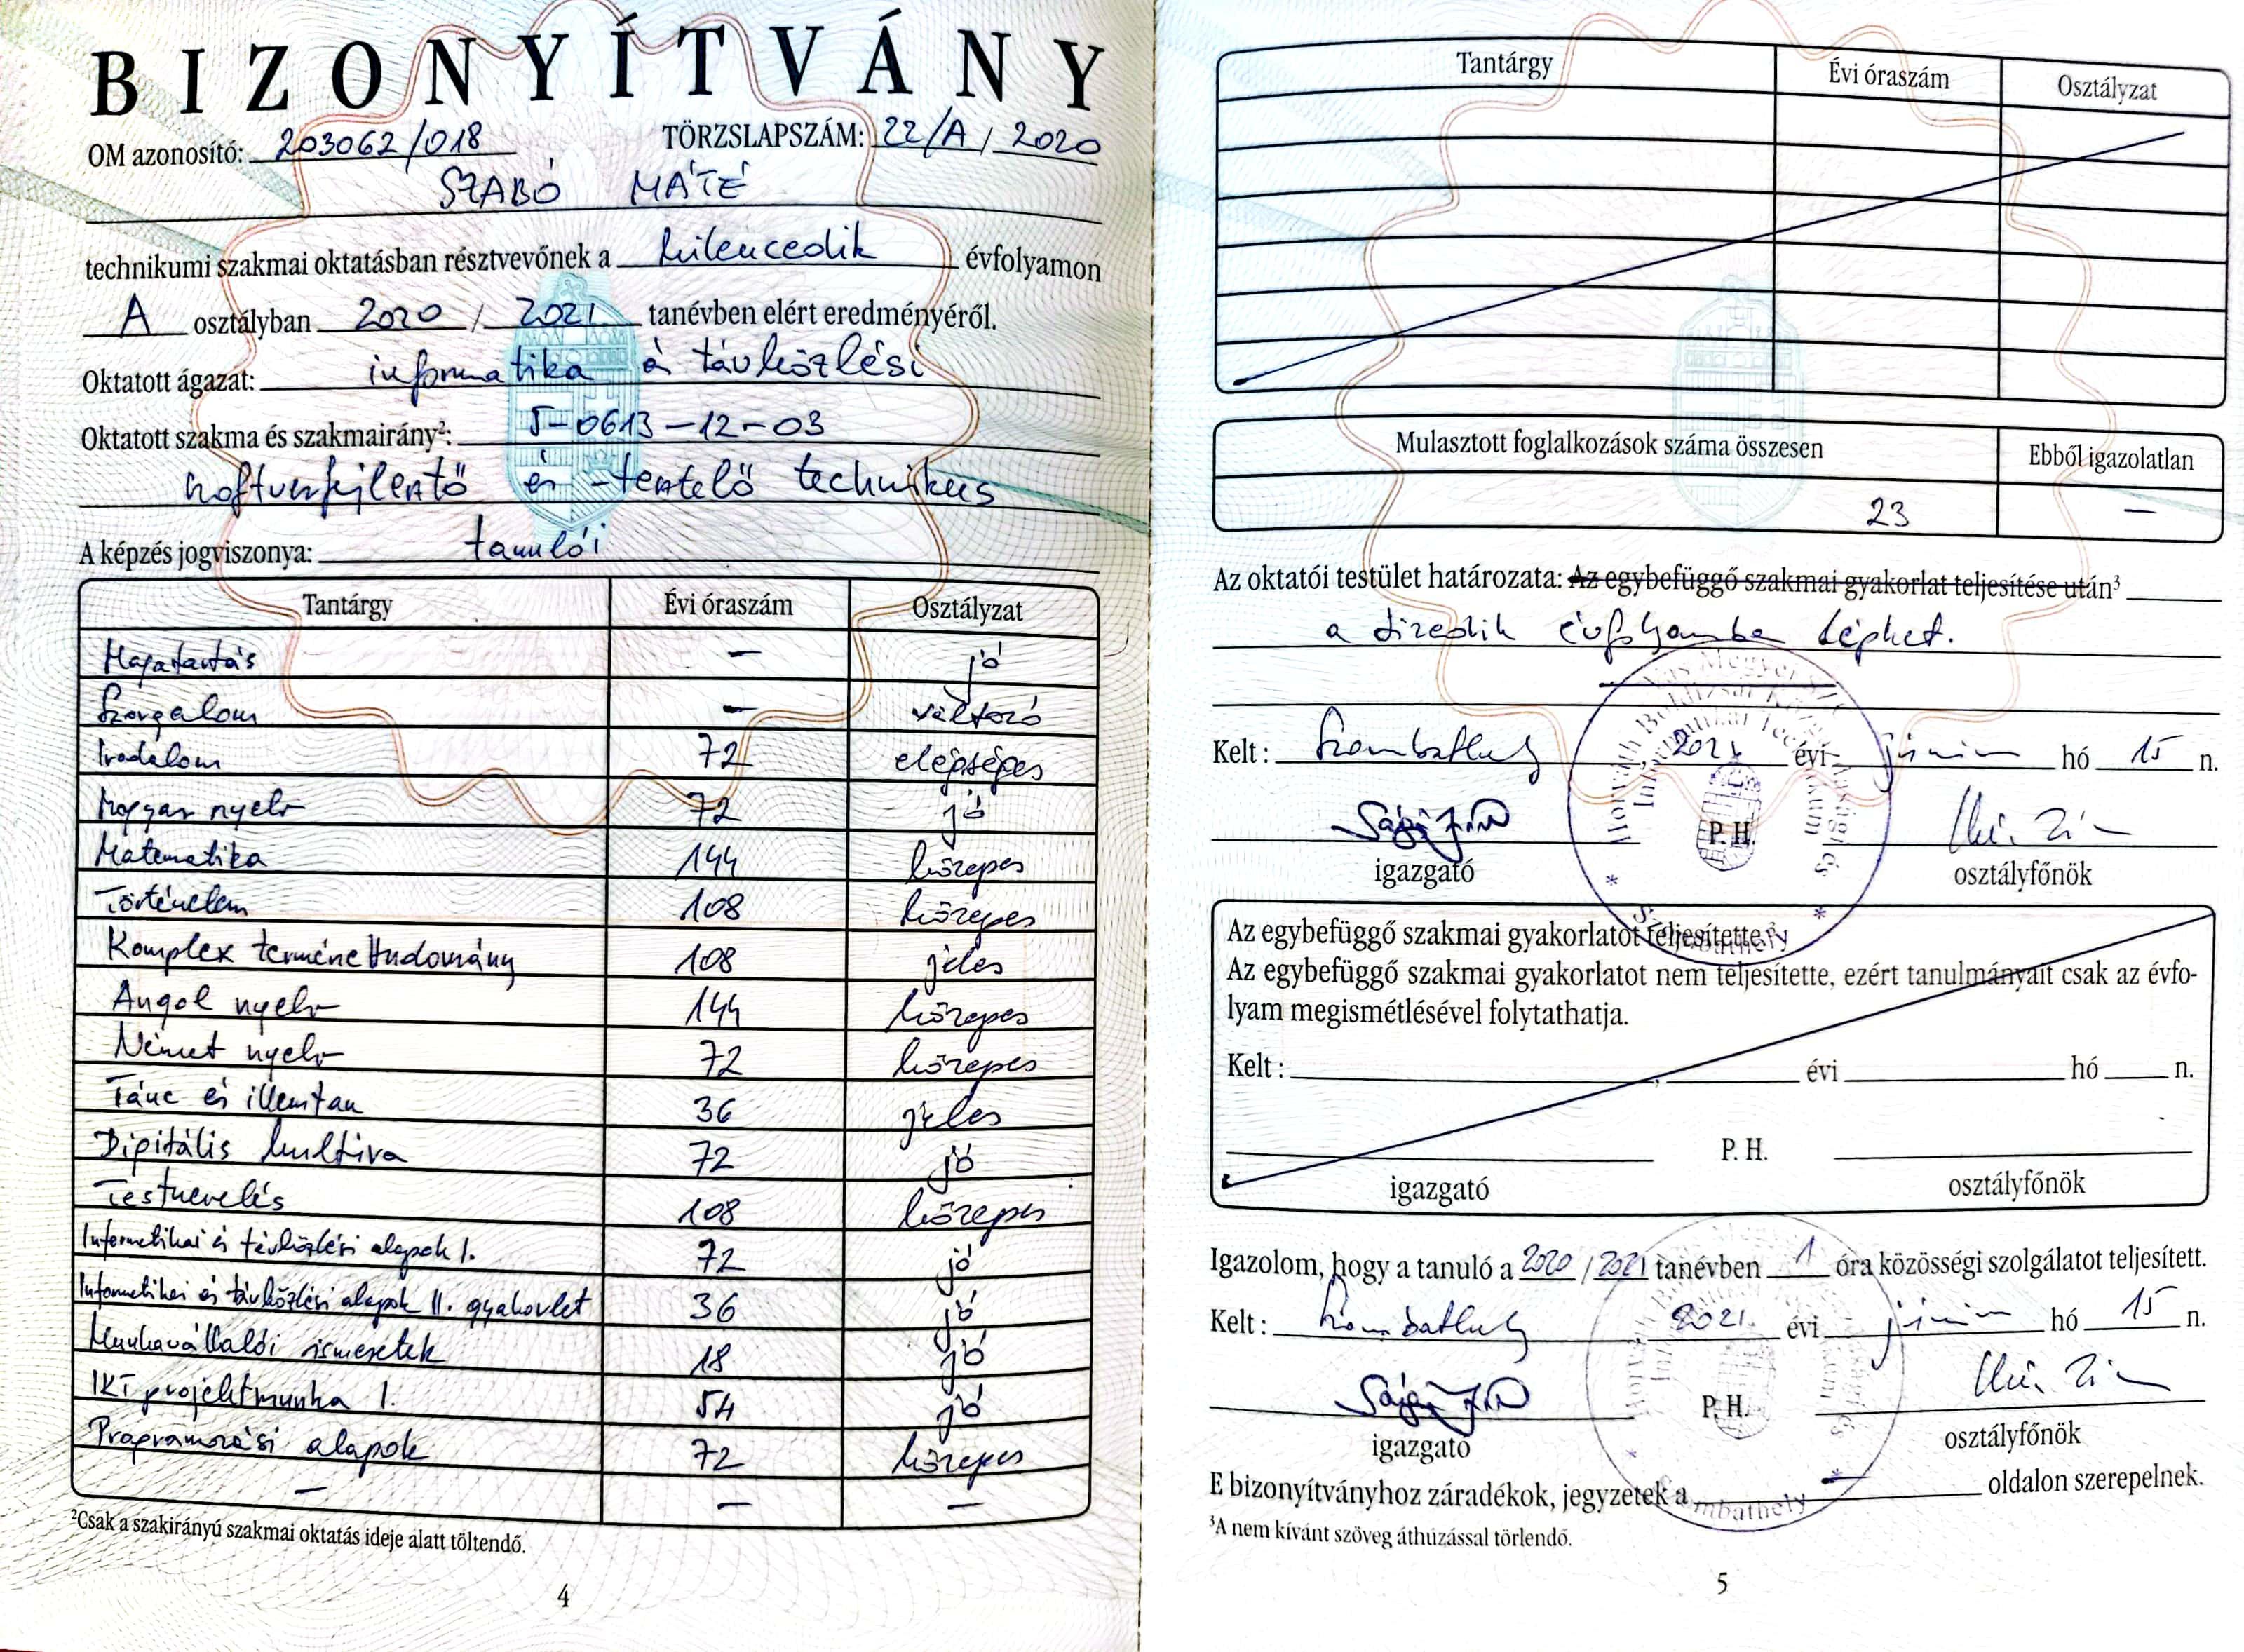 BIZONYÍTVÁNY
OM azonosító: 203062/018 TÖRZSLAPSZÁM: 22/A/2020
SZABÓ MÁTÉ
technikumi szakmai oktatásban résztvevőnek a kilencedik évfolyamon
A osztályban 2020 / 2021 tanévben elért eredményéről.
Oktatott ágazat: informatika és távközlési
Oktatott szakma és szakmairány²: 5-0613-12-03
szoftverfejlesztő és -tesztelő technikus
A képzés jogviszonya: tanulói
Tantárgy Évi óraszám Osztályzat
Magatartás – jó
Szorgalom – változó
Irodalom 72 elégséges
Magyar nyelv 72 jó
Matematika 144 közepes
Történelem 108 közepes
Komplex természettudomány 108 jeles
Angol nyelv 144 közepes
Német nyelv 72 közepes
Tánc és illemtan 36 jeles
Digitális kultúra 72 jó
Testnevelés 108 közepes
Informatikai és távközlési alapok I. 72 jó
Informatikai és távközlési alapok II. gyakorlat 36 jó
Munkavállalói ismeretek 18 jó
IKT projektmunka I. 54 jó
Programozási alapok 72 közepes
– – –
²Csak a szakirányú szakmai oktatás ideje alatt töltendő.
4
Tantárgy Évi óraszám Osztályzat
Mulasztott foglalkozások száma összesen Ebből igazolatlan
23 –
Az oktatói testület határozata: Az egybefüggő szakmai gyakorlat teljesítése után³
a tizedik évfolyamba léphet.
Kelt: Szombathely 2021 évi június hó 15 n.
P. H.
igazgató osztályfőnök
Az egybefüggő szakmai gyakorlatot teljesítette.³
Az egybefüggő szakmai gyakorlatot nem teljesítette, ezért tanulmányait csak az évfo-
lyam megismétlésével folytathatja.
Kelt: , évi hó n.
P. H.
igazgató osztályfőnök
Igazolom, hogy a tanuló a 2020 / 2021 tanévben 1 óra közösségi szolgálatot teljesített.
Kelt: Szombathely 2021. évi június hó 15 n.
P. H.
igazgató osztályfőnök
E bizonyítványhoz záradékok, jegyzetek a – oldalon szerepelnek.
³A nem kívánt szöveg áthúzással törlendő.
5